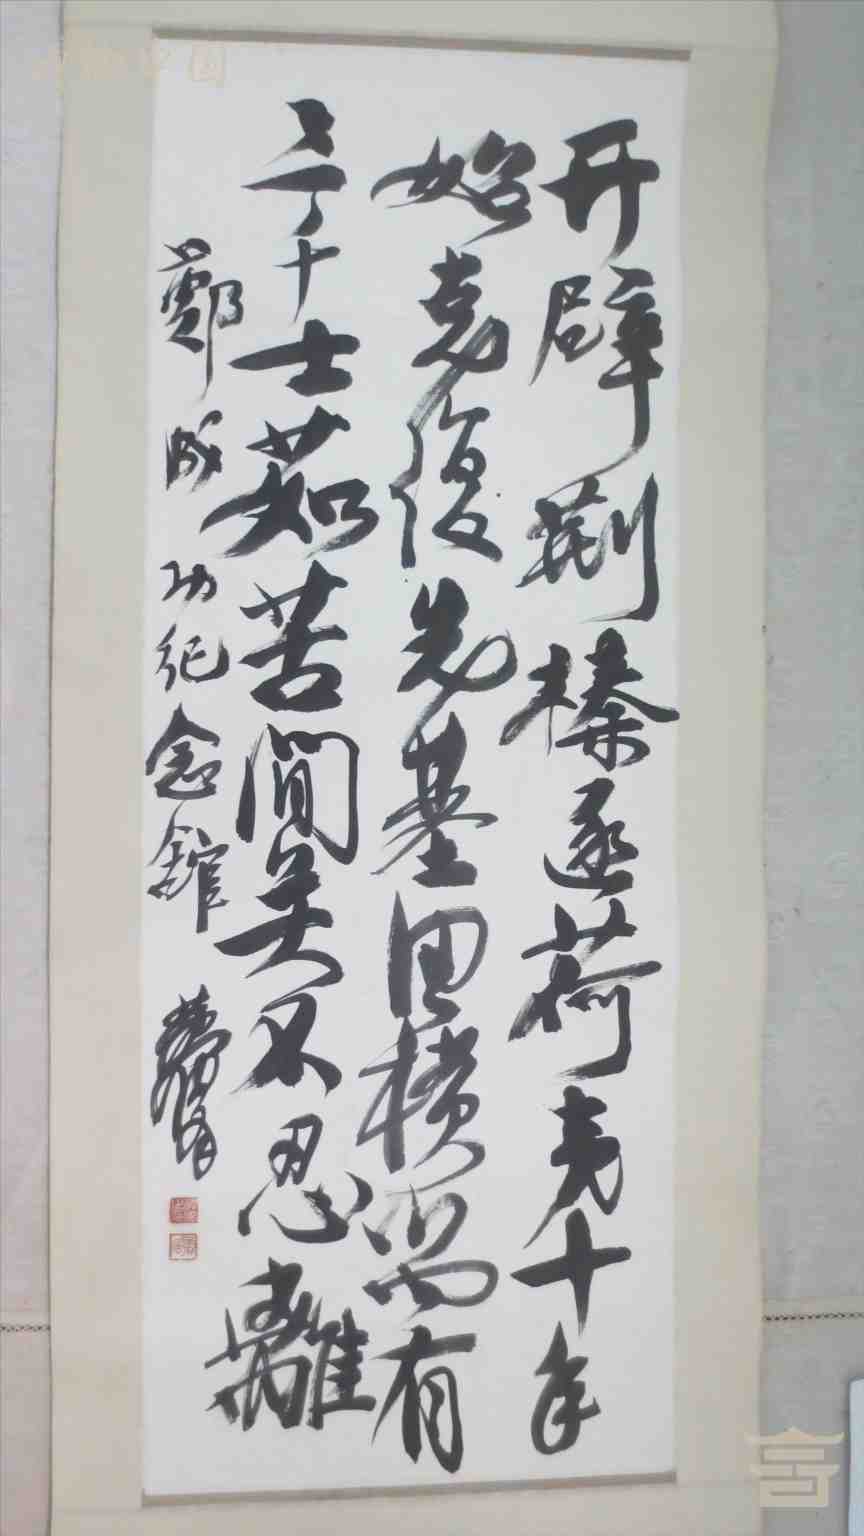 开辟荆榛逐荷夷十年
始克復先基田横尚有
三千士茹苦間关不忍離
鄭成功纪念館 萧